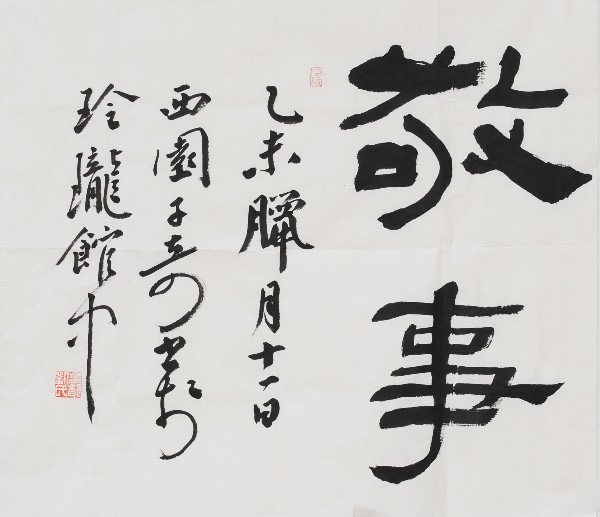 敬事
乙未臘月十一日
西園子奇書於
玲瓏館中